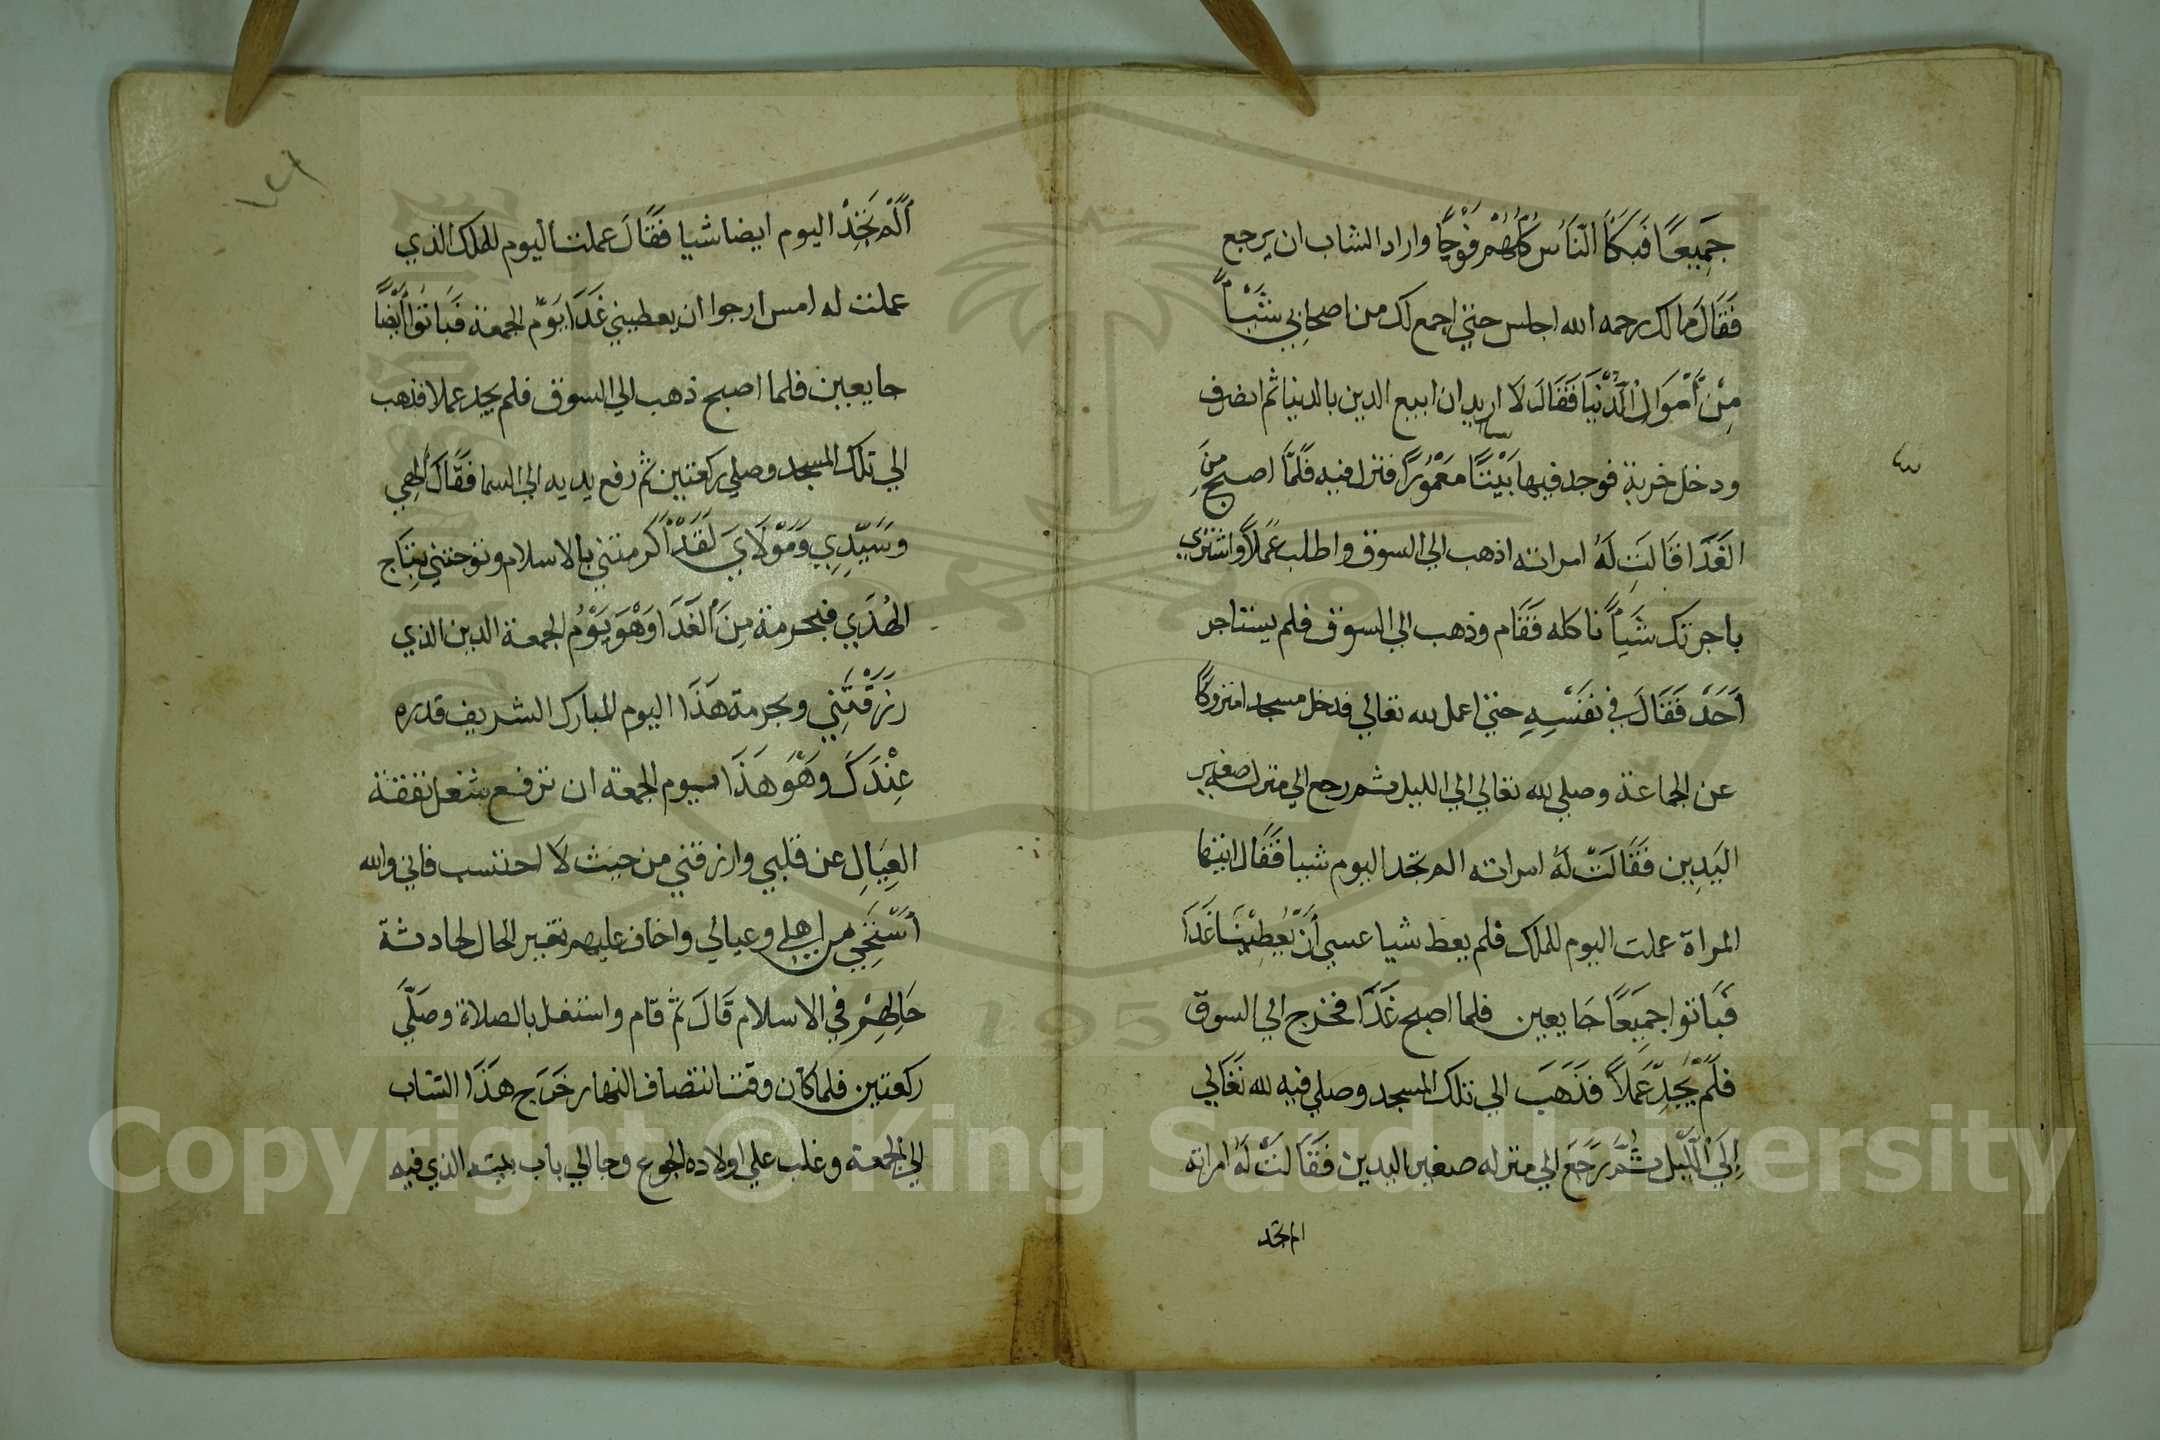 جَمِيعًا فَبَكَا النَّاسُ كُلُّهُمْ فَوْجًا واراد الشاب ان يرجع
فَقَالَ مالك رحمه الله اجلس حتى اجمع لك من اصحابي شَيْأً
مِنْ أَمْوَالِ الدُّنْيَا فَقَالَ لَا اريد ان ابيع الدين بالدنيا ثم انصرف
ودخل خربة فوجد فيها بَيْتًا مَعْمُورًا فنزل فيه فَلَمَّا اصبح مِنَ
الغَدَا قَالَتِ لَهُ امراته اذهب الي السوق واطلب عَمَلًا واشتري
باجرتك شَيْأً ناكله فَقَام وذهب الي السوق فلم يستاجر
أَحَدْ فَقَالَ في نَفْسِهِ حتى اعمل لله تعالي فدخل مسجدا متروكًا
عن الجماعة وصلي لله تعالي الي الليل ثم رجع الي منزله صغير
اليَدِين فَقَالَتْ لَهُ امراته الم تجد اليوم شيا فَقَال ايتها
المراة عملت اليوم للملك فلم يعط شيا عسي أَنْ يُعْطِيْنَا غَدَا
فَبَاتوا جَمِيعًا جَايعين فلما اصبح غَدَا فخرج الي السوق
فَلَمْ يَجِدْ عَمَلًا فَذَهَبَ الي تلك المسجد وصلي فيه لله تَعَالي
إِلَى اللَّيْل ثُمَّ رَجَعَ الي منزله صغير اليدين فَقَالَتْ لَهُ امراته
الم تجد
أَلَمْ تَجِدْ اليوم ايضا شيا فَقَالَ عملت اليوم للملك الذي
عملت له امس ارجوا ان يعطيني غَدَا يَوْم الجمعة فَبَاتوا أَيْضًا
جايعين فلما اصبح ذهب الي السوق فلم يجد عملا فذهب
الي تلك المسجد وصلي ركعتين ثم رفع يديه الي السما فَقَالَ الهي
وَسَيِّدِي وَمَوْلَايَ لَقَدْ أَكرمتني بالاسلام وتوجتني بِتَاج
الهُدَي فبحرمة مِنَ الغَدَا وَهْوَ يَوْمُ الجمعة الدين الذي
رَزَقْتَنِي وبحرمة هَذَا اليوم المبارك الشريف قدره
عِنْدَكَ وَهْوَ هَذَا يوم الجمعة ان ترفع شغل نفقة
العِيَالِ عن قلبي وارزقني من حيث لا احتسب فاني والله
أسْتَحِي من اهلي وعيالي واخاف عليهم تغيير الحال لحادثة
حَالِهِمْ في الاسلام قَالَ ثم قام واشتغل بالصلاة وصَلَّي
ركعتين فلما كان وقت انتصاف النهار خَرَج هَذَا الشاب
الي الجمعة وغلب علي اولاده الجوع وجا الي باب بيته الذي فيه
Copyright © King Saud University
1957